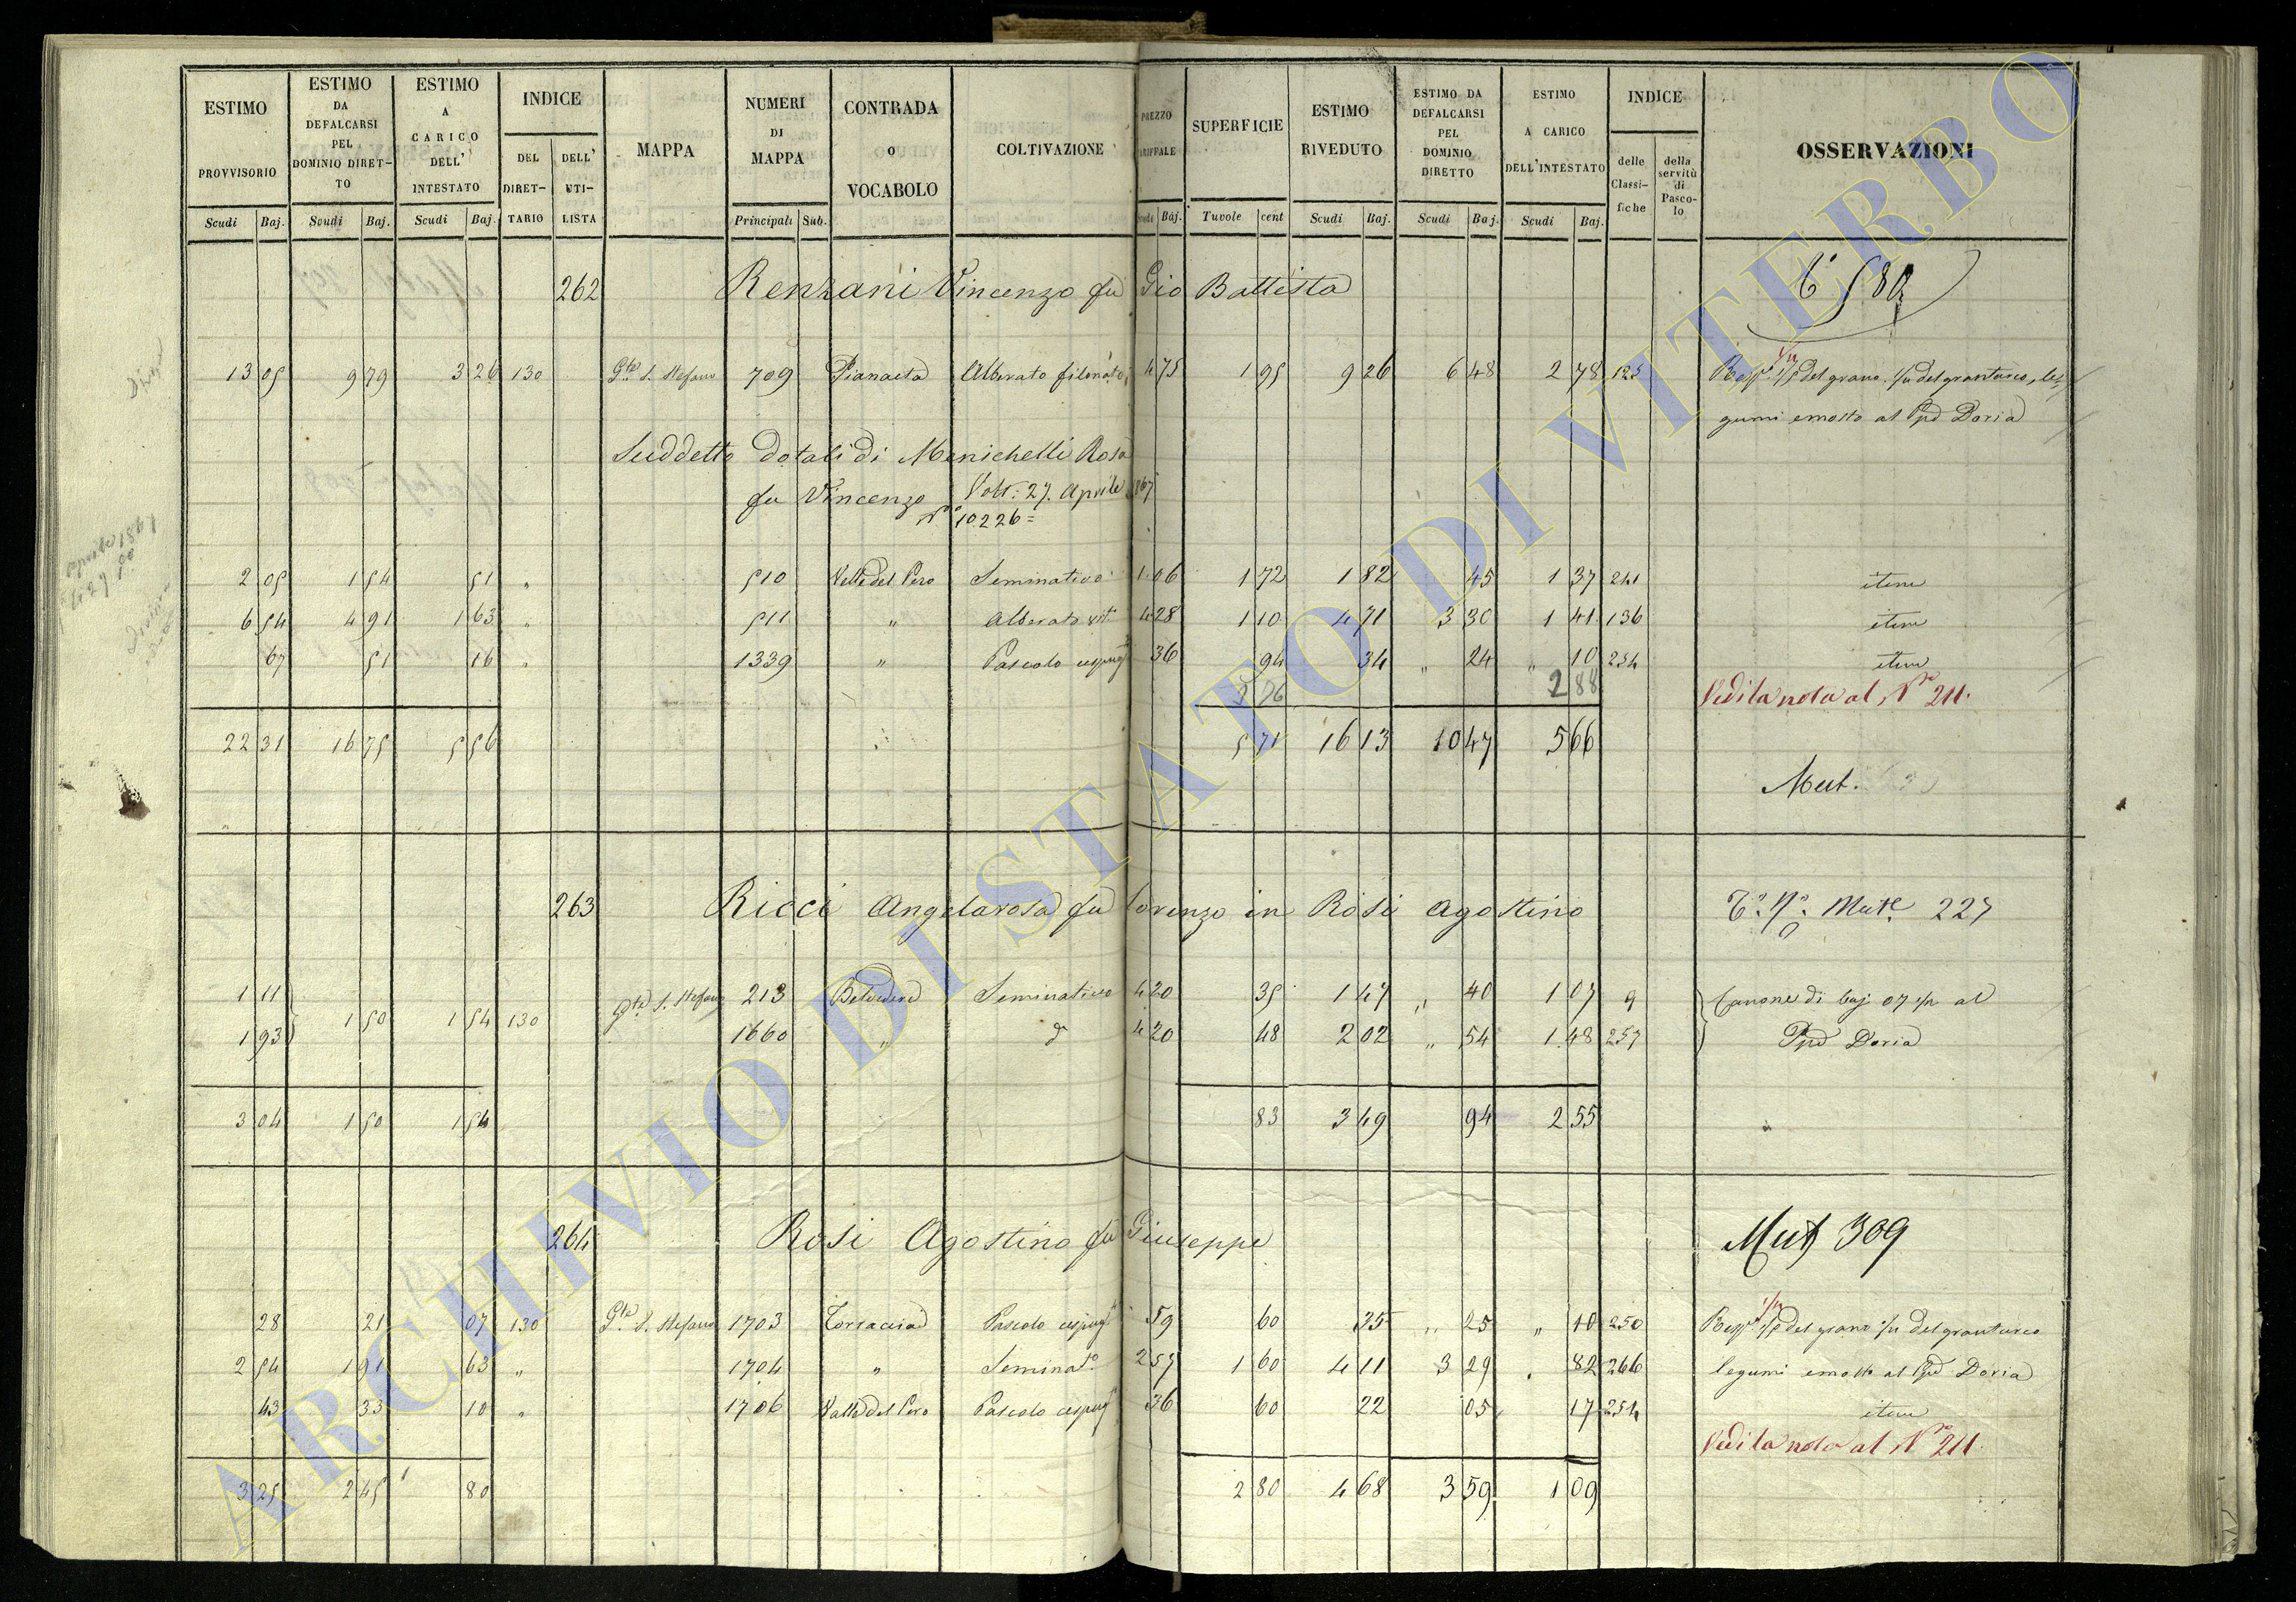 ESTIMO PROVVISORIO Scudi Baj.
ESTIMO DA DEFALCARSI PEL DOMINIO DIRET-TO Scudi Baj.
ESTIMO A CARICO DELL' INTESTATO Scudi Baj.
INDICE DEL DIRET-TARIO DELL' UTI-LISTA
MAPPA
NUMERI DI MAPPA Principali Sub.
CONTRADA O VOCABOLO
COLTIVAZIONE
PREZZO TARIFFALE Scudi Baj.
SUPERFICIE Tavole cent
ESTIMO RIVEDUTO Scudi Baj.
ESTIMO DA DEFALCARSI PEL DOMINIO DIRETTO Scudi Baj.
ESTIMO A CARICO DELL'INTESTATO Scudi Baj.
INDICE delle Classi-fiche della servitù di Pasco-lo
OSSERVAZIONI
262 Renzani Vincenzo fu Gio Battista 580
13 05 9 79 3 26 130 Gtte S. Stefano 709 Pianaeta Alberato filonato 4 75 1 95 9 26 6 48 2 78 125 1/5 del grano, 1/4 del granturco, le-
gumi e mosto al Ppe Doria
Suddetto dotali di Menichelli Rosa
fu Vincenzo Volt: 27. Aprile 867
No 10226=
2 05 1 54 51 " 510 Valle del Pero Seminativo 1 06 1 72 1 82 45 1 37 241 item
6 54 4 91 1 63 " 511 " Alberato vit. 4 28 1 10 4 71 3 30 1 41 136 item
67 51 16 " 1339 " Pascolo cespug 36 94 34 " 24 " 10 254 item
3 76 2 88 Vedi la nota al No 211.
22 31 16 75 5 56 5 71 16 13 10 47 5 66
Mut.
263 Ricci Angelarosa fu Lorenzo in Rosi Agostino Mute 227
1 11 Gtte S. Stefano 213 Belvedere Seminativo 4 20 35 1 47 " 40 1 07 9 Canone di baj 07 1/2 al
1 50 1 54 130
1 93 1660 " d 4 20 48 2 02 " 54 1 48 257 Ppe Doria
3 04 1 50 1 54 83 3 49 94 2 55
264 Rosi Agostino fu Giuseppe Mut 309
28 21 07 130 Gtte S. Stefano 1703 Torraccia Pascolo cespug 59 60 35 " 25 " 10 250 1/5 del grano 1/4 del granturco
2 54 1 91 63 " 1704 " Seminato 2 57 1 60 4 11 3 29 . 82 266 legumi e mosto al Ppe Doria
43 33 10 " 1706 Valle del Pero Pascolo cespug 36 60 22 05 17 254 item
Vedi la nota al No 211.
3 25 2 45 80 2 80 4 68 3 59 1 09
ARCHIVIO DI STATO DI VITERBO